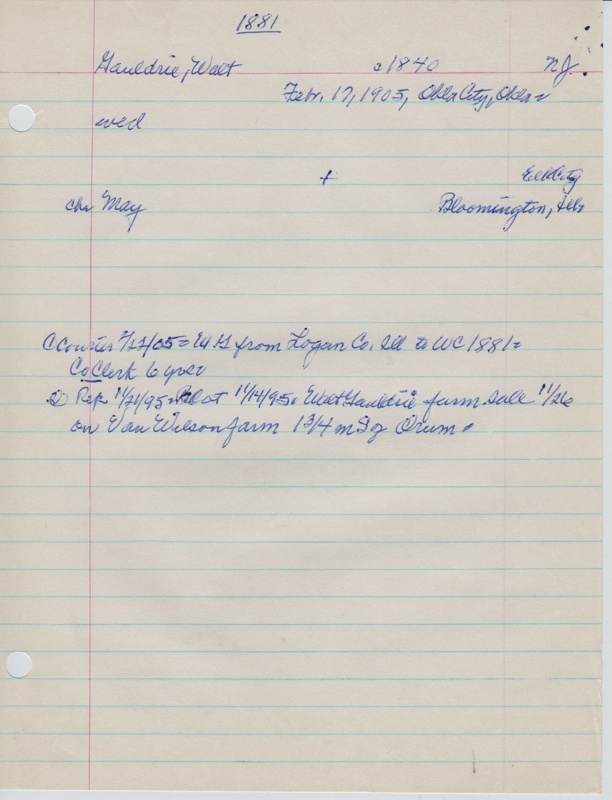 1881
Gauldrie, Walt c1840 NJ.
Febr. 17, 1905, Okla City, Okla=
wed
+ Elk City
ch= May Bloomington, Ills
Courier 2/27/05= from Logan Co. Ill to WC 1881=
Co Clerk 6 yrs=
Rep= 11/21/95= Pilot 11/14/95= Walt Gauldrie farm sale 11/26
on Van Wilson farm 1 3/4 m S of Drum=